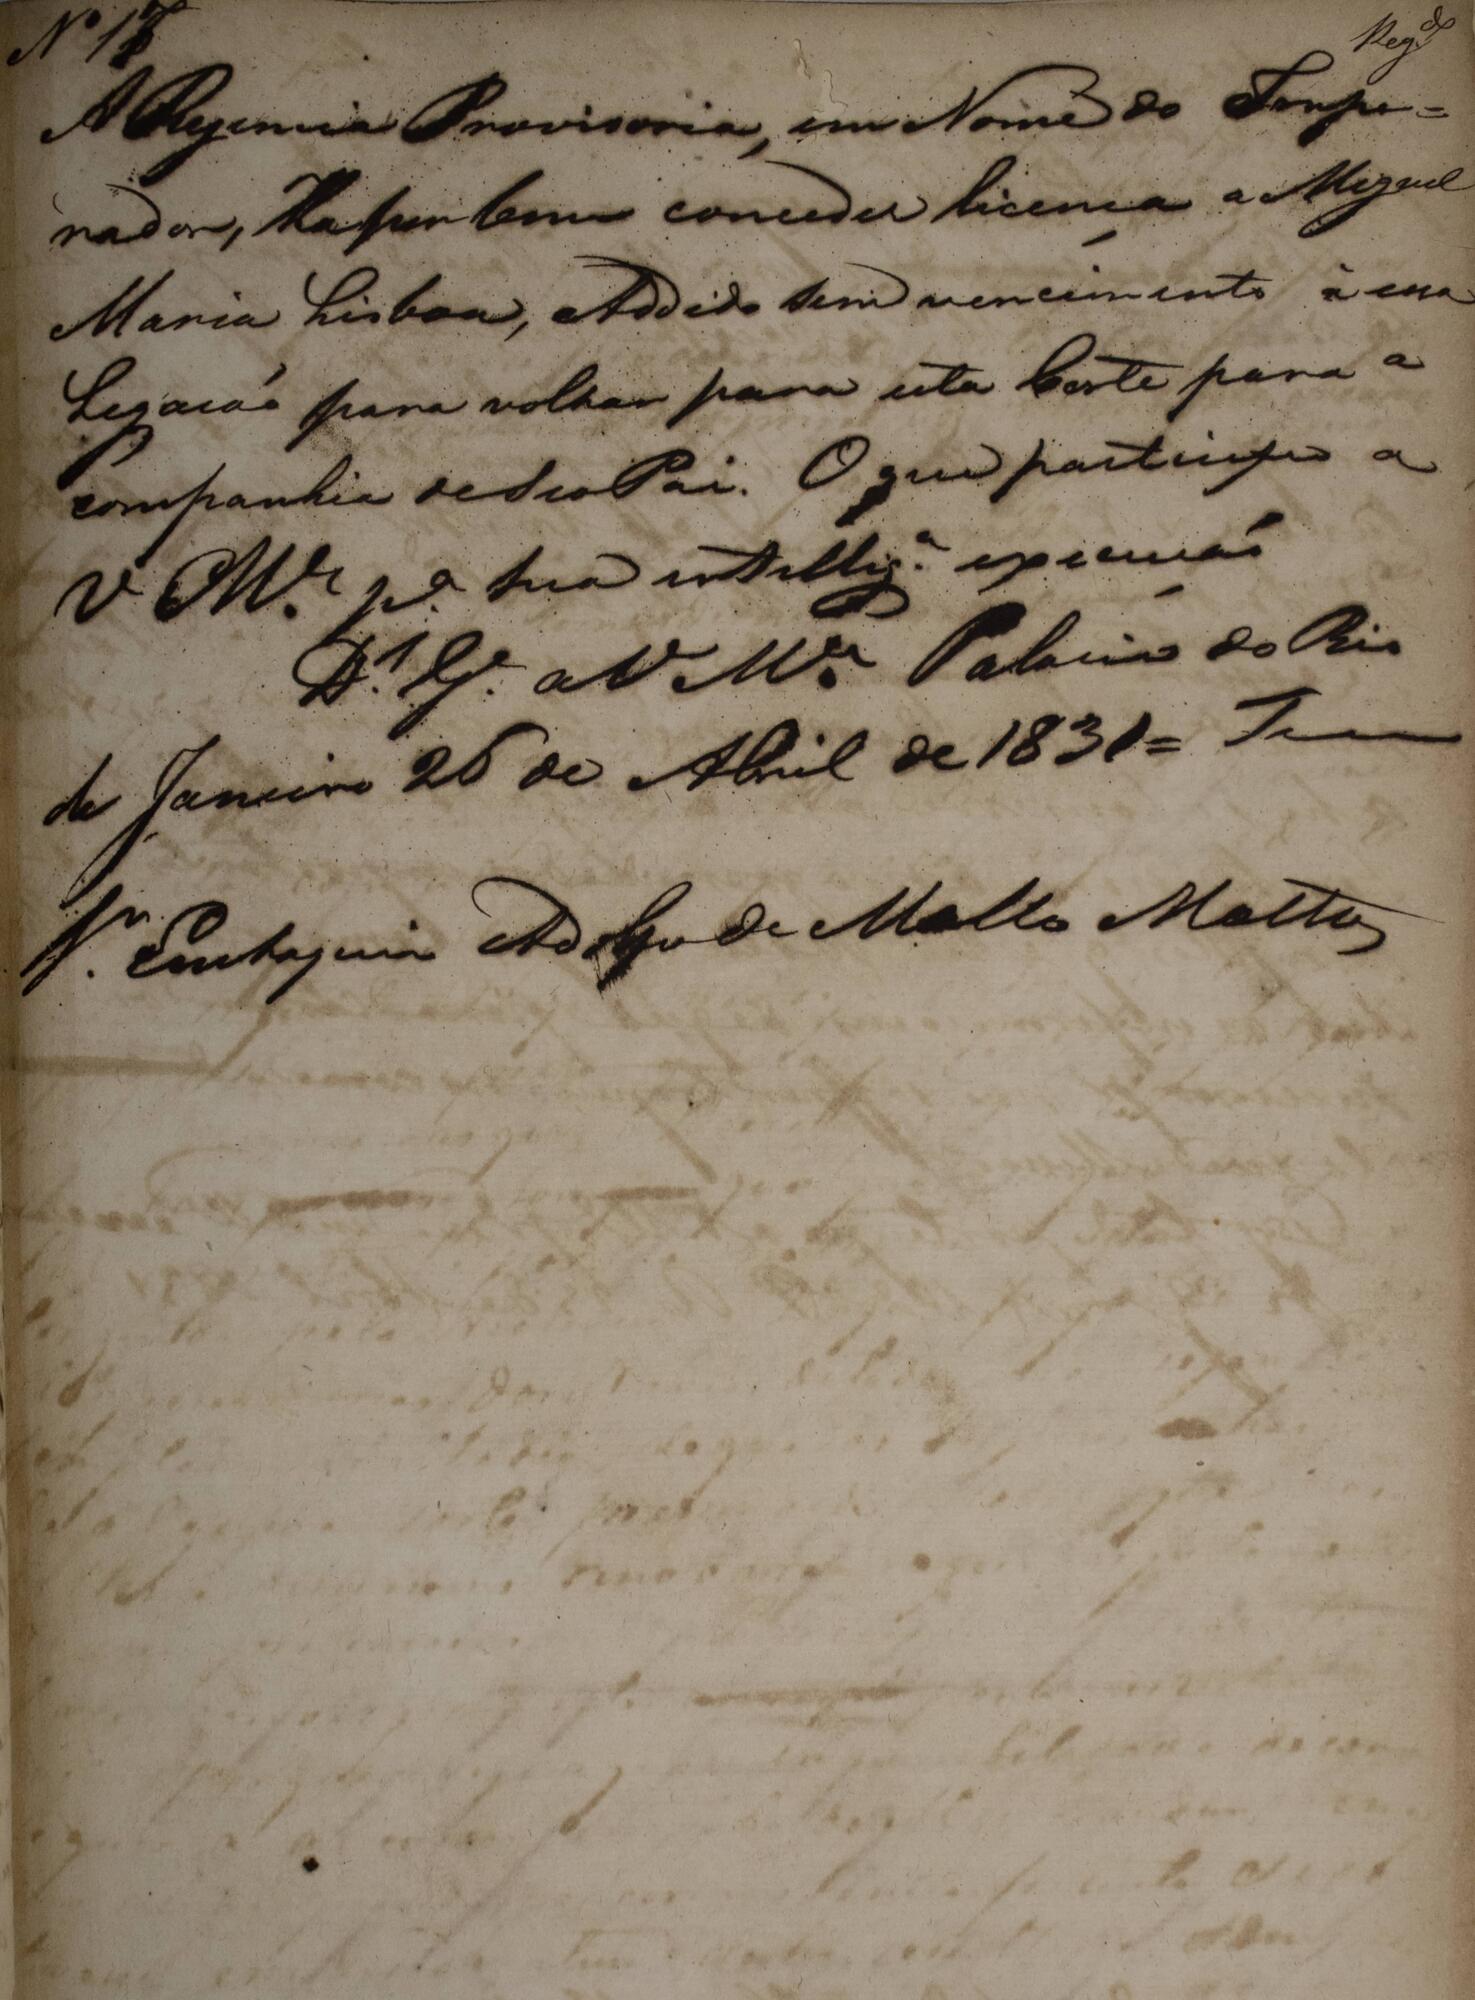 Nº 17
Reg.do
A Regencia Provisoria, em Nome do Impe=
rador, Ha por bem conceder licença a Miguel
Maria Lisboa, Addido sem vencimento à essa
Legação para voltar para esta Corte para a
companhia de seo Pai. O que participo a
V Mce pa sua intellig.a execução
D.s G.e a V Mce Palacio do Rio
de Janeiro 26 de Abril de 1831=
Sr. Eustaquio Adolfo de Mello Mattos